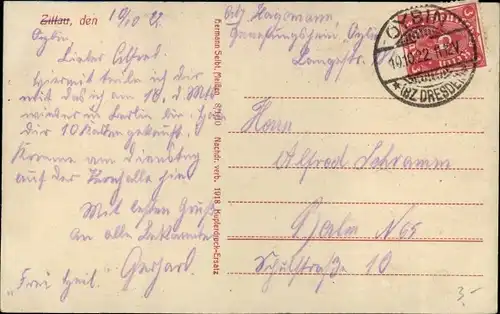 Zittau, den 10/10 22.
Oybin
Lieber Alfred.
Hiermit teile ich dir
mit das ich am 18. d. Mts
wieder in Berlin bin.
dir 10 Karten gekauft.
Komme am Dienstag
auf der hin
Mit besten Gruß
an alle Bekannte
"Frei Heil." Gerhard.
Hermann Seibt, Meißen 8/100 Nachdr. verb. 1918 Kupferdruck-Ersatz
Abs. Hagemann
Oybin
OYBIN
10.10.22.
*(BZ. DRESDEN)
Herrn
Alfred Schramm
Berlin N 65
Schulstraße 10
3.-